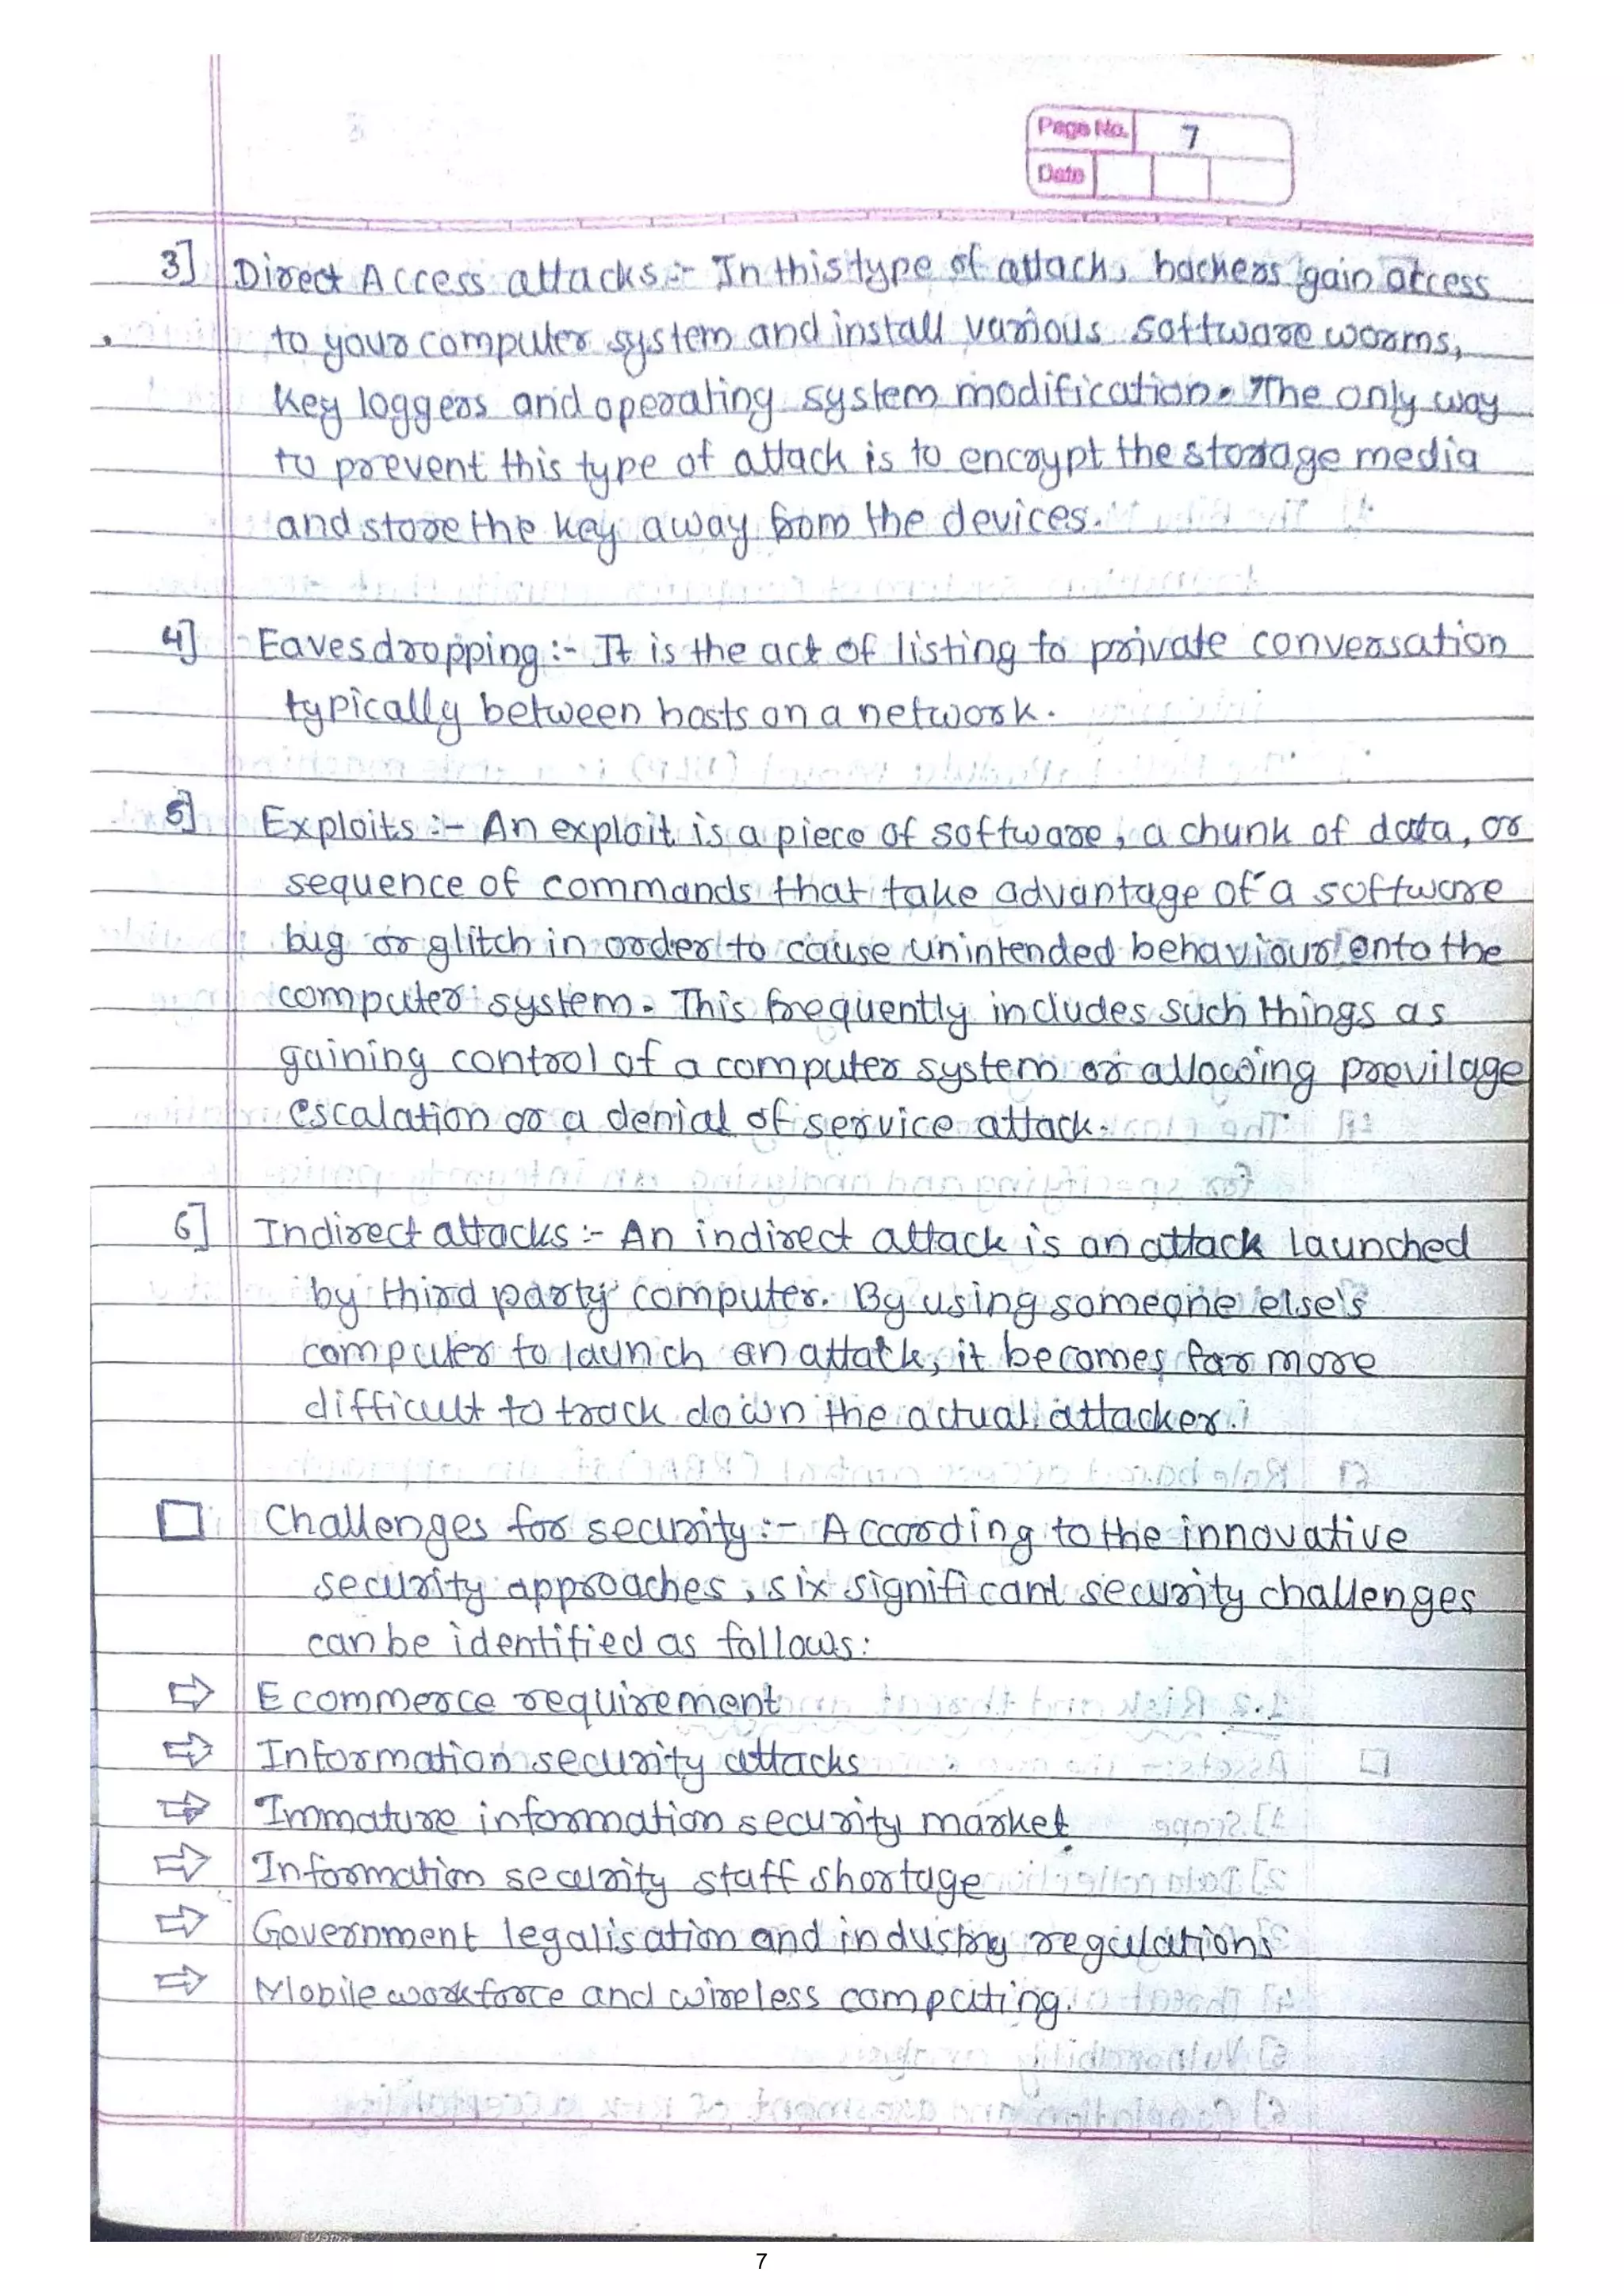 Page No. 7
Date
3] Direct Access attacks :- In this type of attack, hackers gain access
to your computer system and install various software worms,
key loggers and operating system modification. The only way
to prevent this type of attack is to encrypt the storage media
and store the key away from the devices.
4] Eavesdropping :- It is the act of listing to private conversation
typically between hosts on a network.
5] Exploits :- An exploit is a piece of software, a chunk of data, or
sequence of commands that take advantage of a software
bug or glitch in order to cause unintended behaviour onto the
computer system. This frequently includes such things as
gaining control of a computer system or allowing previlage
escalation or a denial of service attack.
6] Indirect attacks :- An indirect attack is an attack launched
by third party computer. By using someone else's
computer to launch an attack, it becomes far more
difficult to track down the actual attacker.
□ Challenges for security :- According to the innovative
security approaches, six significant security challenges
can be identified as follows:
⇨ Ecommerce requirement
⇨ Information security attacks
⇨ Immature information security market
⇨ Information security staff shortage
⇨ Government legalisation and industry regulations
⇨ Mobile workforce and wireless computing.
7